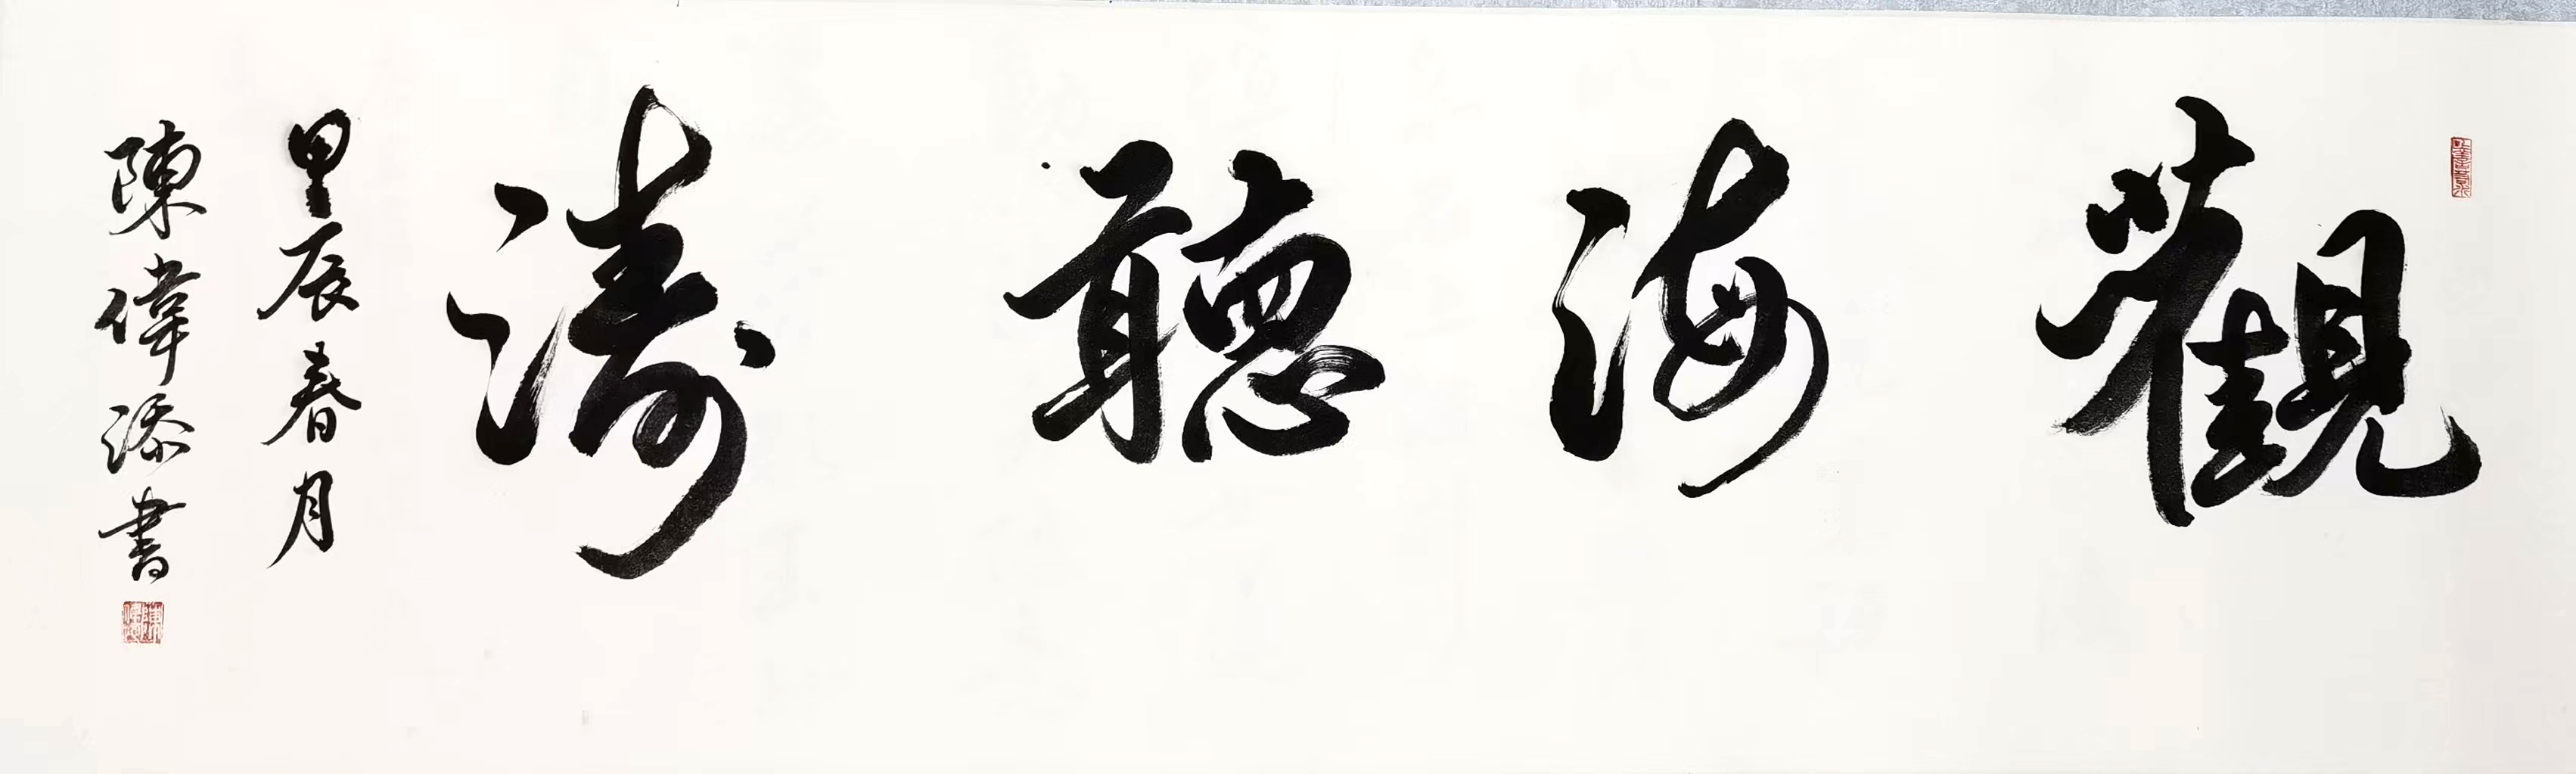 觀海聽濤
甲辰春月
陳偉添書